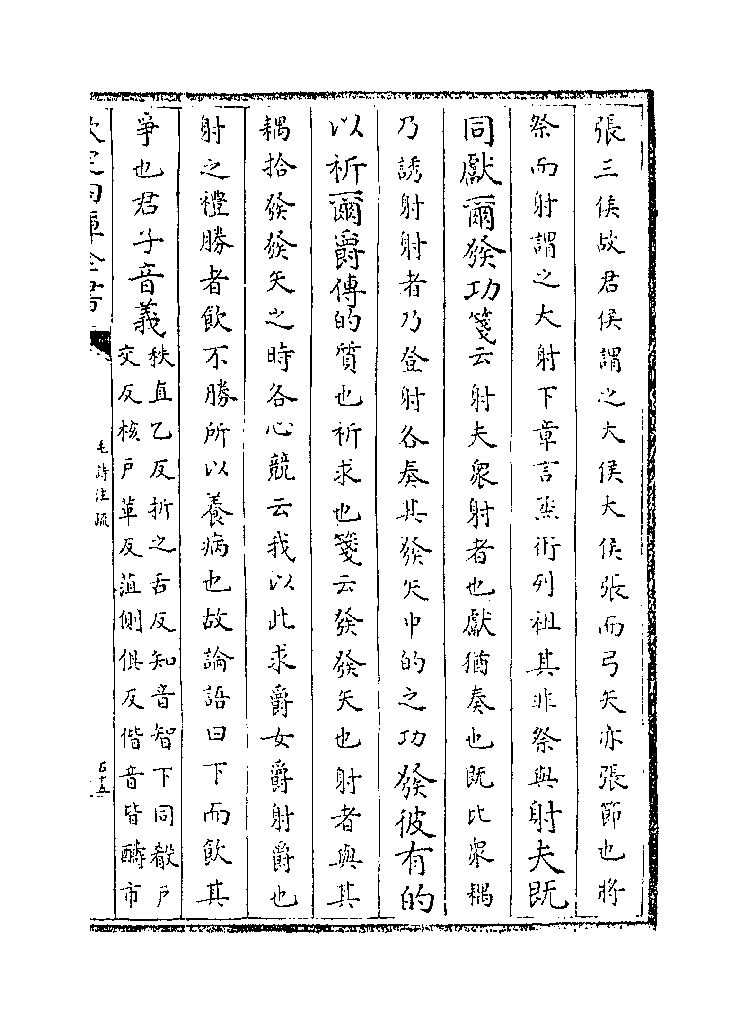 張三侯故君侯謂之大侯大侯張而弓矢亦張節也將
祭而射謂之大射下章言烝衎列祖其非祭與射夫既
同獻爾發功箋云射夫衆射者也獻猶奏也既比衆耦
乃誘射射者乃登射各奏其發矢中的之功發彼有的
以祈爾爵傳的質也祈求也箋云發發矢也射者與其
耦拾發發矢之時各心競云我以此求爵女爵射爵也
射之禮勝者飲不勝所以養病也故論語曰下而飲其
爭也君子音義秩直乙反折之舌反知音智下同殽戶
交反核戶革反菹側俱反偕音皆醻市
欽定四庫全書
毛詩注疏
五十五